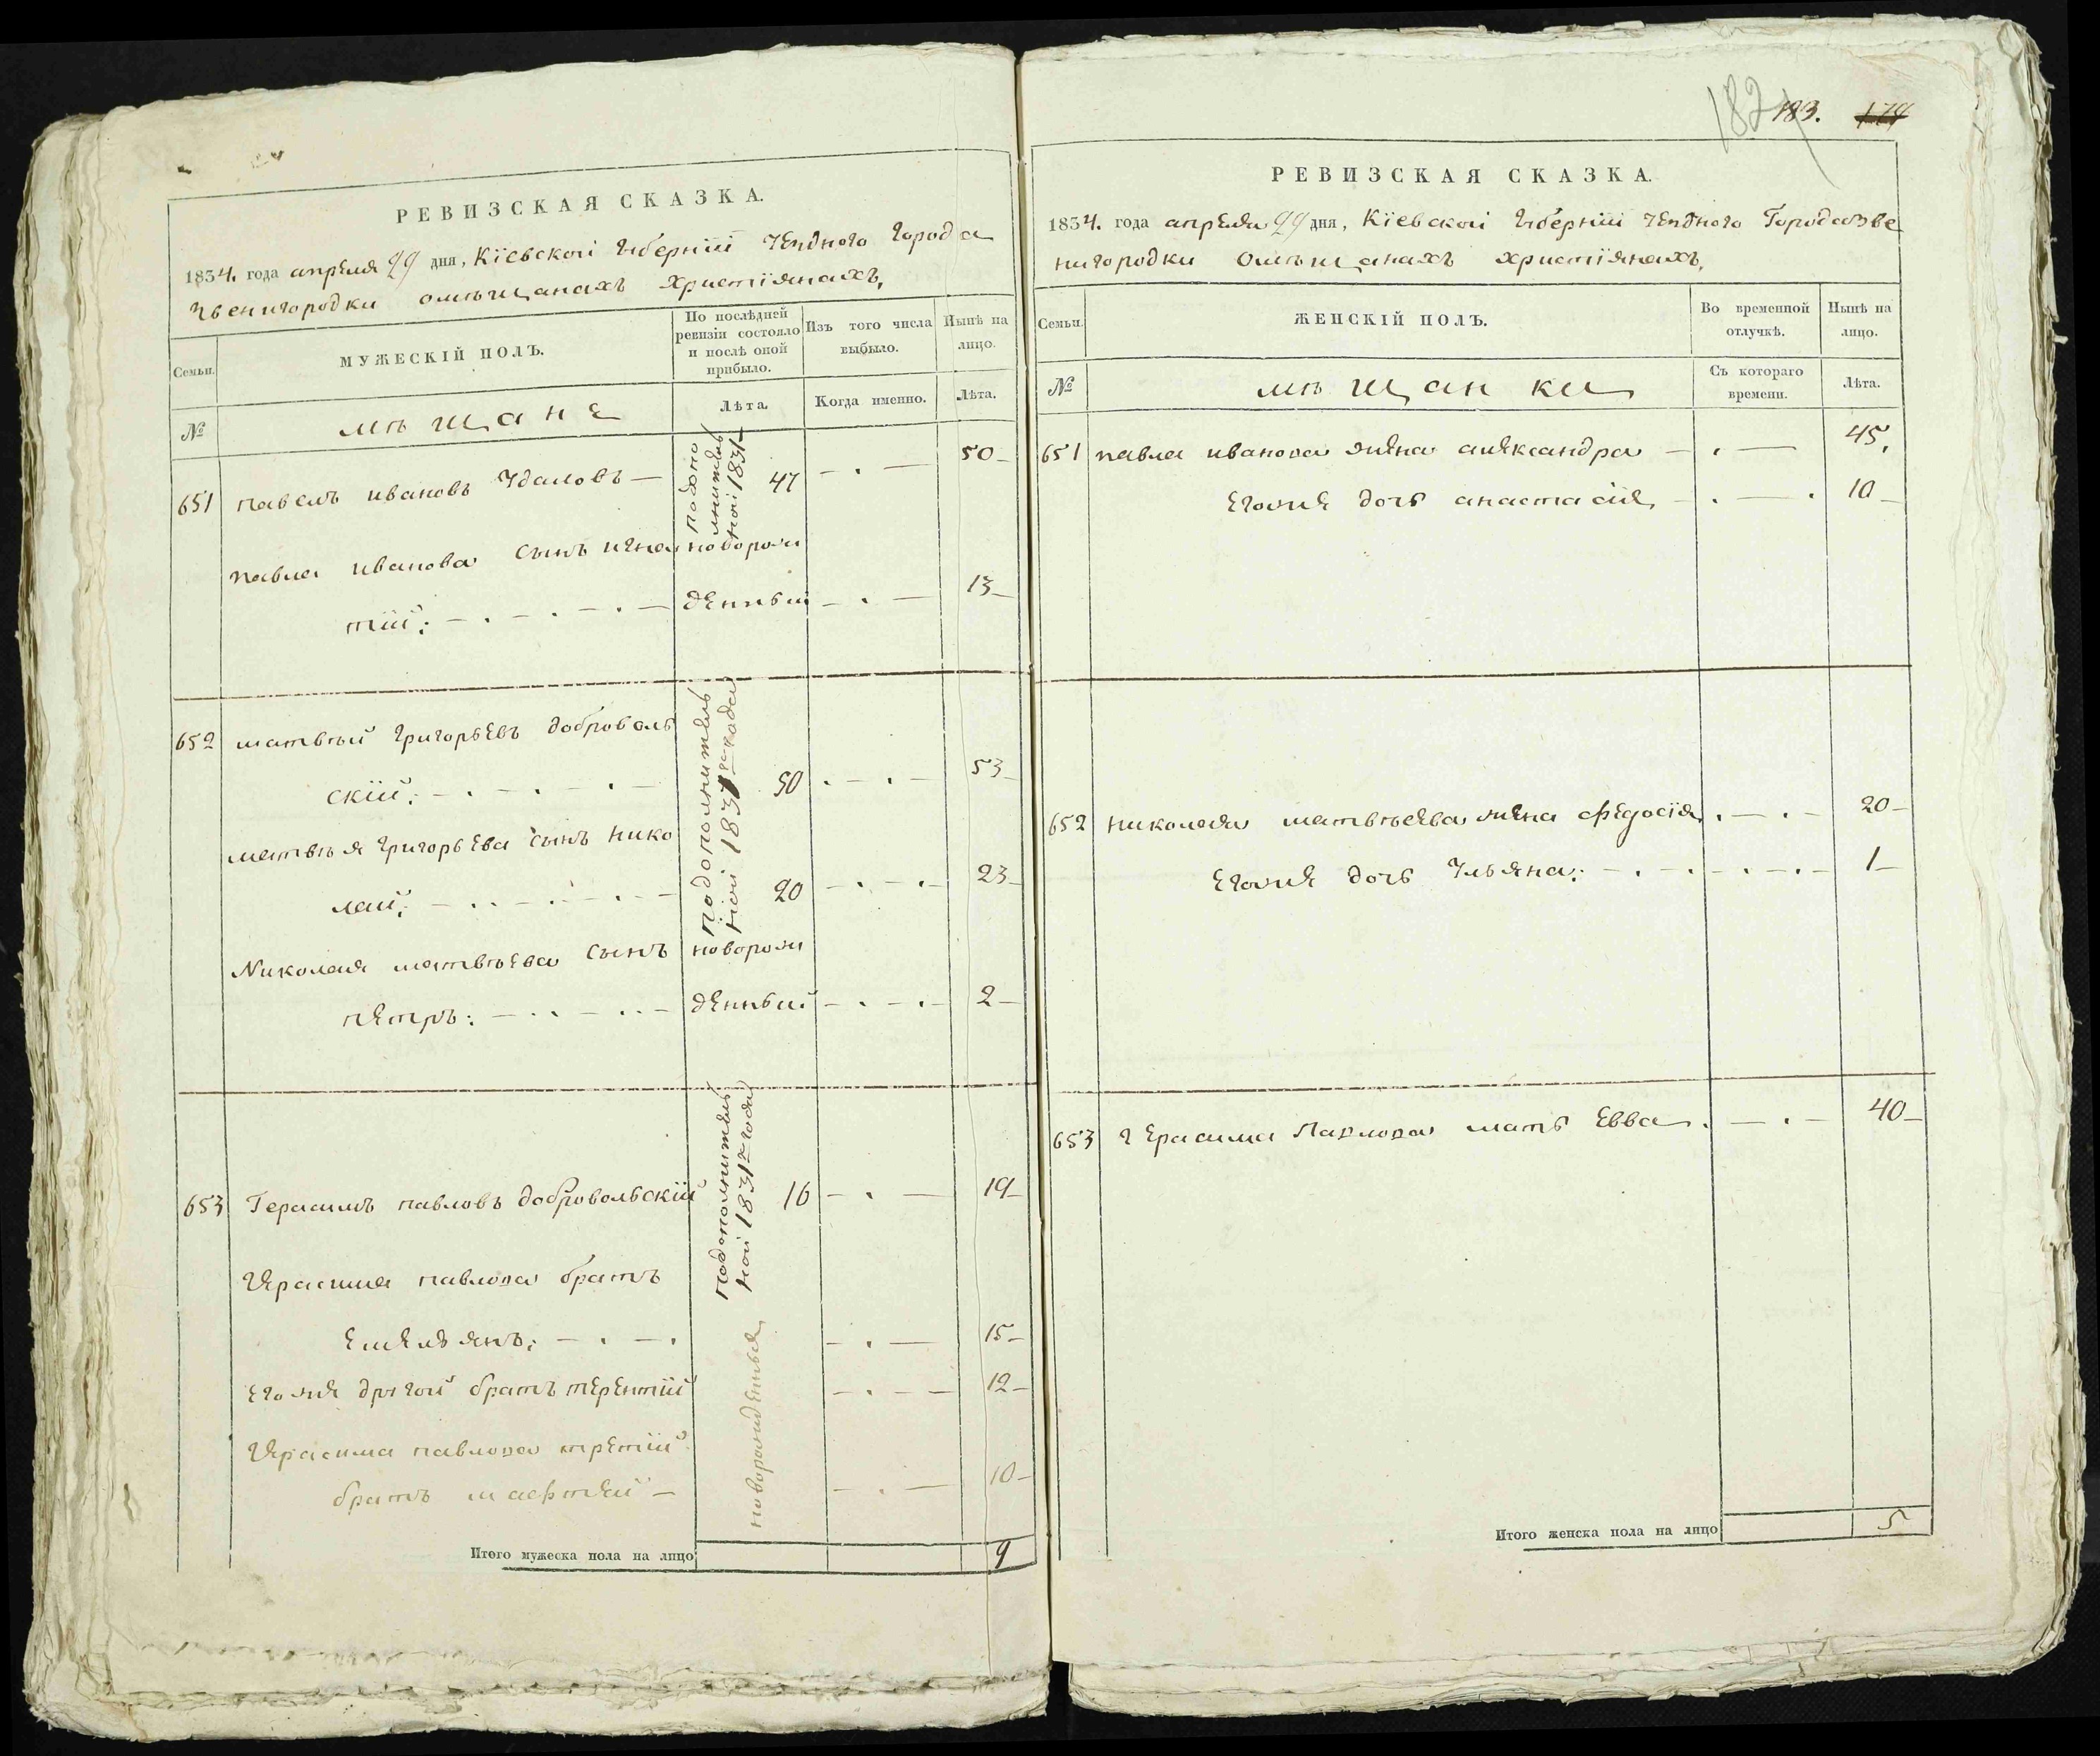 РЕВИЗСКАЯ СКАЗКА.
1834. года апреля 29 дня, Кіевской Губерніи уезднаго города
Звенигородки омѣщанахъ христіянахъ,
Семьи.
МУЖЕСКІЙ ПОЛЪ.
По послѣдней
ревизіи состояло
и послѣ оной
прибыло.
Изъ того числа
выбыло.
Нынѣ на
лицо.
№
мѣщане
Лѣта.
Когда именно.
Лѣта.
651 павелъ ивановъ Удаловъ — 47 — . — 50
подопо
лнитель
ной 1831
павла иванова сынъ игна новорож
тій: — . — . — . — денный — . — 13
652 матвѣй григорьевъ доброволь
скій: — . — . — . — 50 . — . — 53
подополнитель
ной 1831го года
матвѣя григорьева сынъ нико
лай: — . . — . — . . — 20 — . — . — 23
Николая матвѣева сынъ новорож
петръ: — . . — . . — денный — . — . — 2
653 Герасимъ павловъ добровольскій 16 — . — 19
подополнитель
ной 1831го года
Герасима павлова братъ
емельянъ: — . — . — . — 15
егоже другой братъ терентій — . — — 12
Герасима павлова третій
братъ мафтей — — . — 10
новорожденныя
Итого мужеска пола на лицо 9
182 183. 174
РЕВИЗСКАЯ СКАЗКА.
1834. года апреля 29 дня, Кіевской Губерніи уезднаго Города Зве
нигородки омѣщанахъ христіянахъ,
Семьи.
ЖЕНСКІЙ ПОЛЪ.
Во временной
отлучкѣ.
Нынѣ на
лицо.
№
мѣщанки
Съ котораго
времени.
Лѣта.
651 павла иванова жена александра — . — 45.
егоже дочь анастасія — . — . 10
652 николая матвѣева жена федосія . — . — 20
егоже дочь Ульяна: — . — . — . — . — 1
653 герасима Павлова мать Евва . — . — 40
Итого женска пола на лицо 5